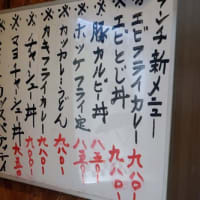 ランチ新メニュー
※エビフライカレー 九八〇ー
※エビとじ丼 九八〇ー
※豚カルビ丼 八五〇ー
※ホッケフライ定 八五〇ー
※カツカレーうどん
※カキフライカレー 九八〇ー
※チャーシュー丼 九八〇ー
※マヨチャーシュー丼 九五〇ー